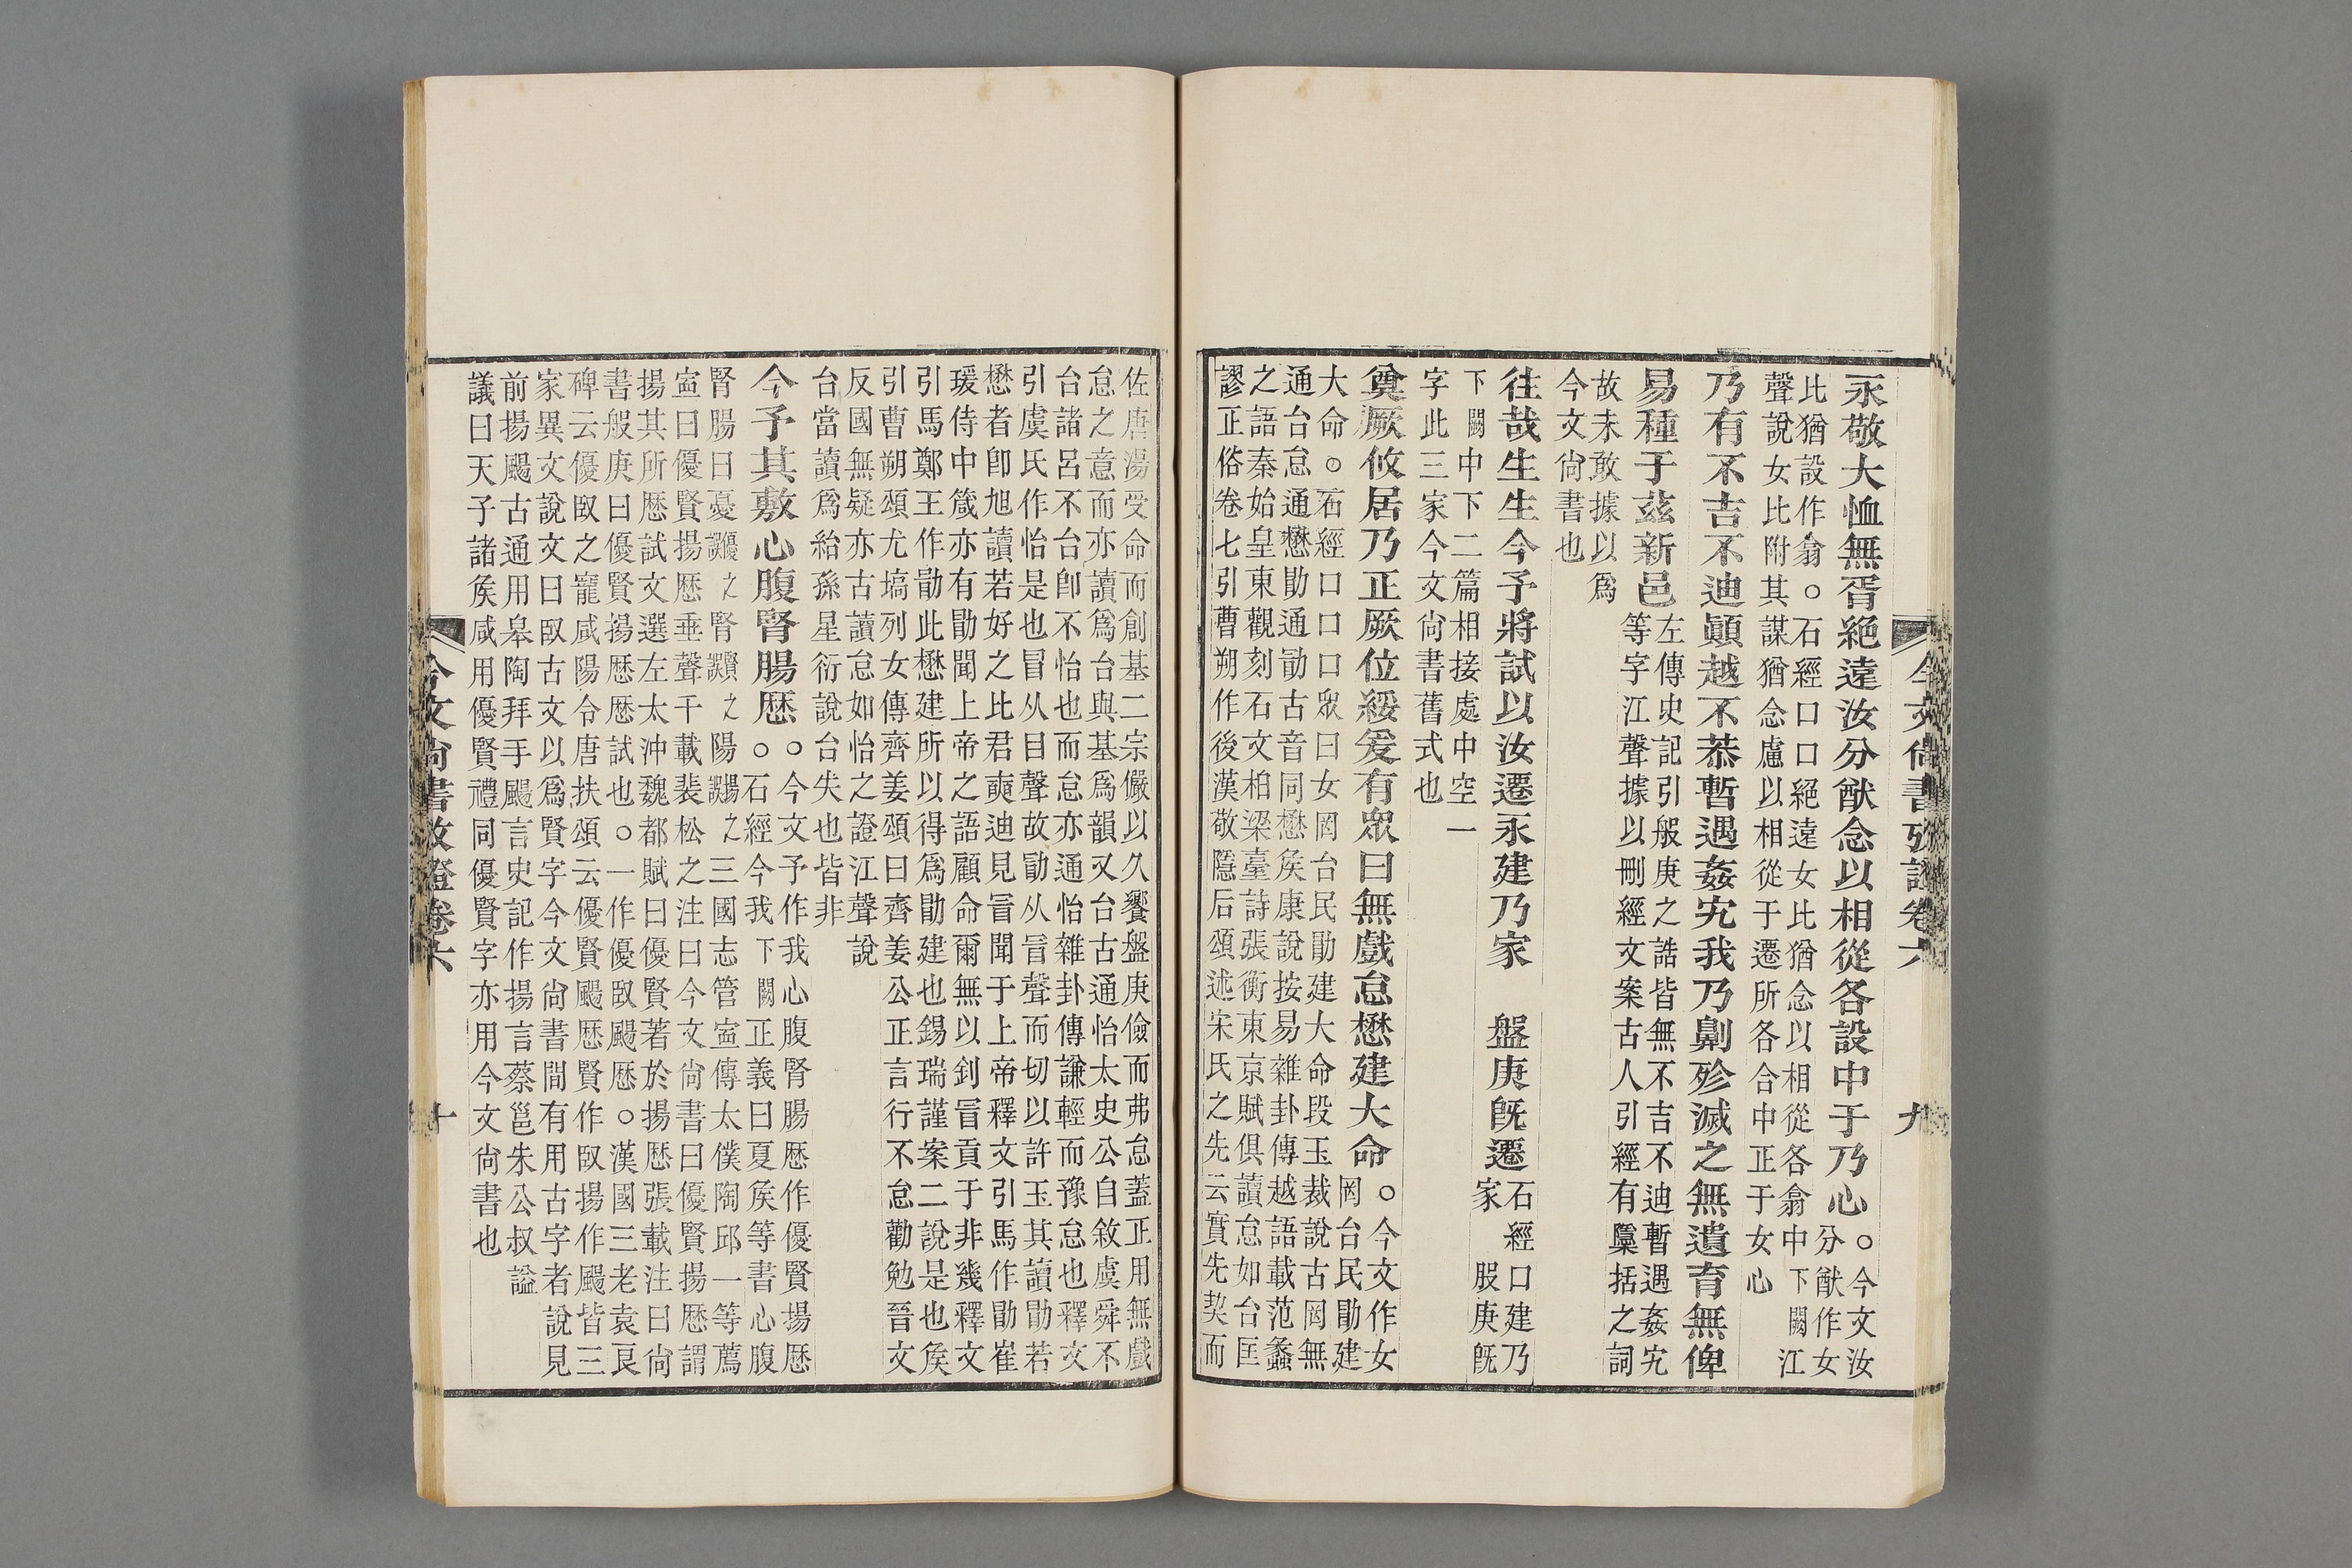 今文尚書攷證卷六
九
永敬大恤無胥絕遠汝分猷念以相從各設中于乃心○今文汝分猷作女
比猶設作翕○石經口口絕遠女比猶念以相從各翕中下闕江
聲說女比附其謀猶念慮以相從于遷所各合中正于女心
乃有不吉不迪顚越不恭暫遇姦宄我乃劓殄滅之無遺育無俾
易種于茲新邑左傳史記引般庚之誥皆無不吉不迪暫遇姦宄
等字江聲據以刪經文案古人引經有檃括之詞
故未敢據以爲
今文尚書也
往哉生生今予將試以汝遷永建乃家
盤庚旣遷石經口建乃
家 股庚旣
下闕中下二篇相接處中空一
字此三家今文尚書舊式也
奠厥攸居乃正厥位綏爰有眾曰無戲怠懋建大命○今文作女
罔台民勖建
大命○石經口口口眾曰女罔台民勖建大命段玉裁說古罔無
通台怠通懋勖通勖古音同懋矦康說按易雜卦傳越語載范蠡
之語秦始皇東觀刻石文柏梁臺詩張衡東京賦俱讀怠如台匡
謬正俗卷七引曹朔作後漢敬隱后頌述宋氏之先云實先契而
佐唐湯受命而創基二宗儼以久饗盤庚儉而弗怠蓋正用無戲
怠之意而亦讀爲台與基爲韻又台古通怡太史公自敘虞舜不
台諸呂不台卽不怡也而怠亦通怡雜卦傳謙輕而豫怠也釋文
引虞氏作怡是也冒从目聲故勖从冒聲而切以許玉其讀勖若
懋者卽旭讀若好之比君奭迪見冒聞于上帝釋文引馬作勖崔
瑗侍中箴亦有勖聞上帝之語顧命爾無以釗冒貢于非幾釋文
引馬鄭王作勖此懋建所以得爲勖建也錫瑞謹案二說是也矦
引曹朔頌尤塙列女傳齊姜頌曰齊姜公正言行不怠勸勉晉文
反國無疑亦古讀怠如怡之證江聲說
台當讀爲紿孫星衍說台失也皆非
今予其敷心腹腎腸歷○今文予作我心腹腎腸歷作優賢揚歷
○石經今我下闕正義曰夏矦等書心腹
腎腸曰憂譌優之腎譌賢之陽譌揚之三國志管寍傳太僕陶邱一等薦
寍曰優賢揚歷垂聲千載裴松之注曰今文尚書曰優賢揚歷謂
揚其所歷試文選左太沖魏都賦曰優賢著於揚歷張載注曰尚
書般庚曰優賢揚歷歷試也○一作優臤颺歷○漢國三老袁良
碑云優臤之寵咸陽令唐扶頌云優賢颺歷賢作臤揚作颺皆三
家異文說文曰臤古文以爲賢字今文尚書間有用古字者說見
前揚颺古通用皋陶拜手颺言史記作揚言蔡邕朱公叔謚
議曰天子諸矦咸用優賢禮同優賢字亦用今文尚書也
今文尚書攷證卷六
十